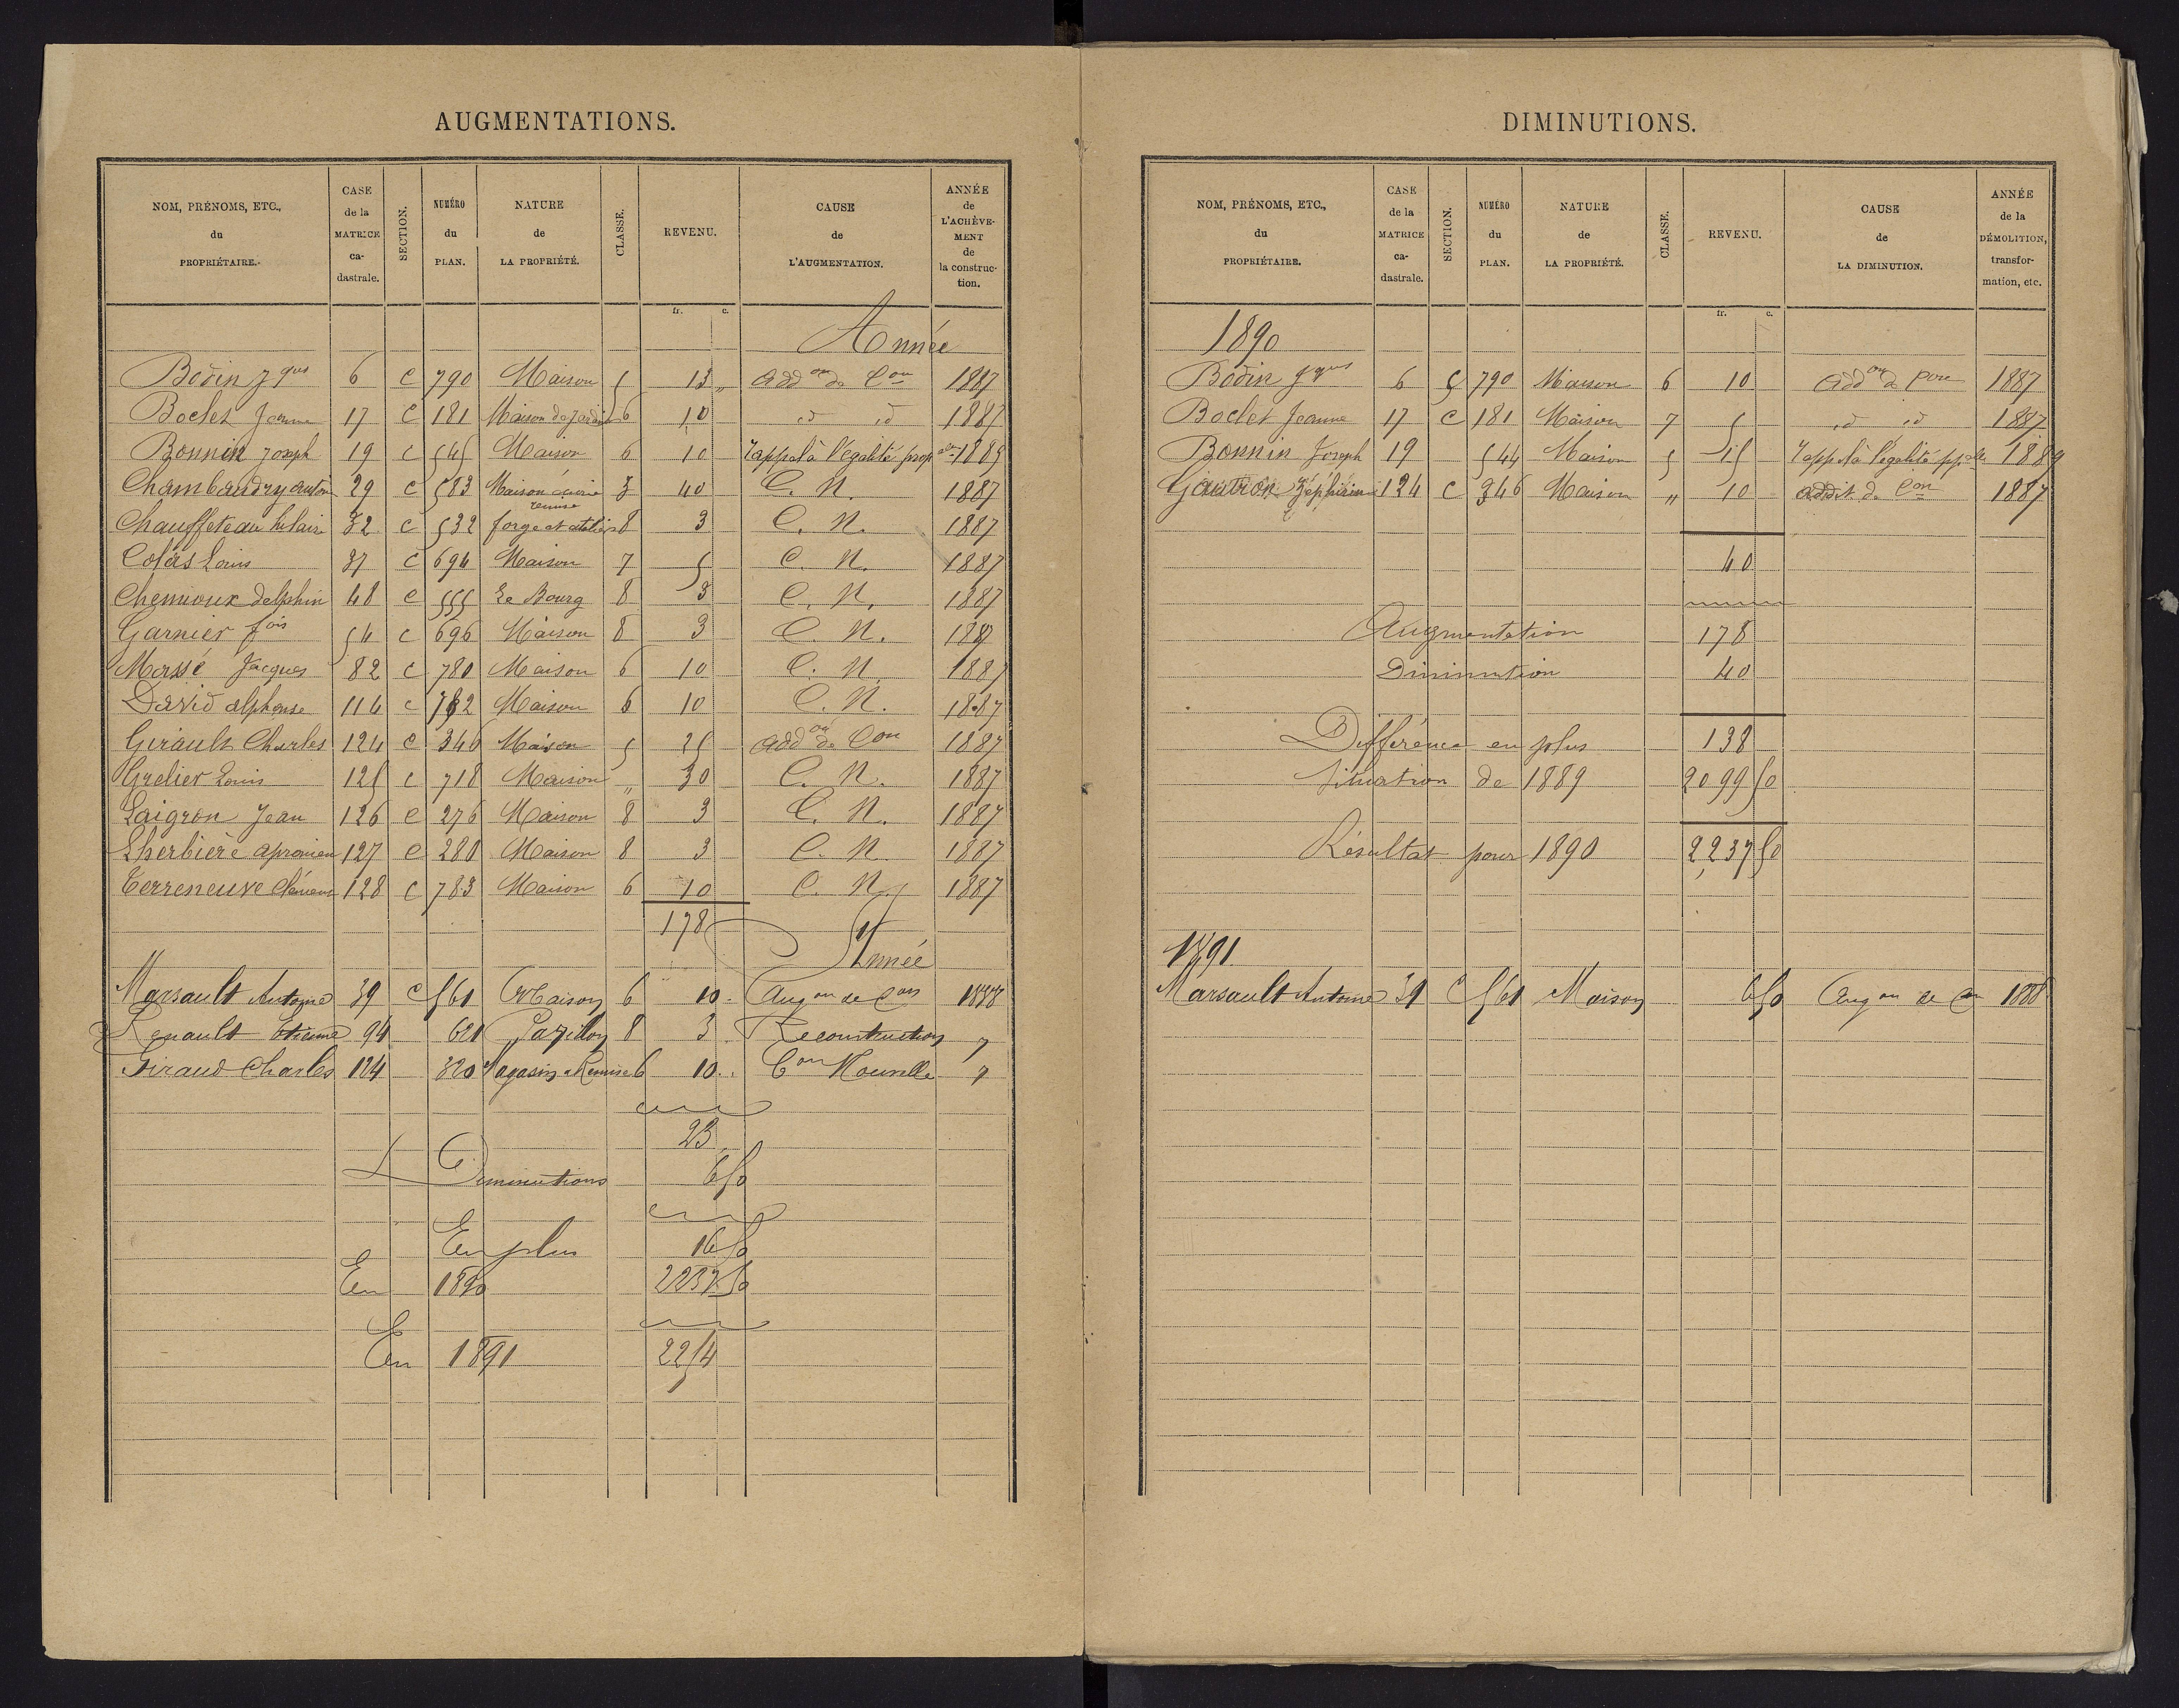 AUGMENTATIONS.
NOM, PRÉNOMS, ETC., du PROPRIÉTAIRE. CASE de la MATRICE ca-dastrale. SECTION. NUMÉRO du PLAN. NATURE de LA PROPRIÉTÉ. CLASSE. REVENU. CAUSE de L'AUGMENTATION. ANNÉE de L'ACHÈVE-MENT de la construc-tion.
fr. c.
Année
Bodin Jques 6 C 790 Maison 5 15 " addon de Con 1887
Boclet Jeanne 17 C 181 Maison de Jardin 6 10 id id 1887
Bonnin Joseph 19 C 545 Maison 6 10 rappel à l'égalité prop elle 1889
Chambaudry 29 C 583 Maison écurie remise 3 40 C. N. 1887
Chauffeteau hilaire 32 C 532 forge et atelier 8 3 C. N. 1887
Colas Louis 37 C 694 Maison 7 5 C. N. 1887
Chennoux delphin 48 C 555 Le Bourg 8 3 C. N. 1887
Garnier fois 54 C 696 Maison 8 3 C. N. 1887
Massé Jacques 82 C 780 Maison 6 10 C. N. 1887
David alphonse 116 C 782 Maison 6 10 C. N. 1887
Girault Charles 124 C 346 Maison 5 25 addon de Con 1887
Grelier Louis 125 C 718 Maison " 30 C. N. 1887
Laigron Jean 126 C 276 Maison 8 3 C. N. 1887
Lherbière apronien 127 C 280 Maison 8 3 C. N. 1887
Terreneuve Clément 128 C 783 Maison 6 10 C. N. 1887
178
Année
Marsault Antoine 39 C 561 Maison 6 10 Augon de Con 1888
Renault Etienne 94 621 Pavillon 8 3 Reconstruction "
Giraud Charles 124 320 Magasin Remise 6 10 Con Nouvelle "
23
Diminutions 6 50
En plus 16 50
En 1890 2237 50
En 1891 2254
DIMINUTIONS.
NOM, PRÉNOMS, ETC., du PROPRIÉTAIRE. CASE de la MATRICE ca-dastrale. SECTION. NUMÉRO du PLAN. NATURE de LA PROPRIÉTÉ. CLASSE. REVENU. CAUSE de LA DIMINUTION. ANNÉE de la DÉMOLITION, transfor-mation, etc.
fr. c.
1890
Bodin Jques 6 C 790 Maison 6 10 addon de Con 1887
Boclet Jeanne 17 C 181 Maison 7 5 id id 1887
Bonnin Joseph 19 544 Maison 5 15 rappel à l'égalité pp.elle 1889
Gautron Zéphirin 124 C 346 Maison " 10 addit. de Con 1887
40
Augmentation 178
Diminution 40
Différence en plus 138
Situation de 1889 2099 50
Résultat pour 1890 2237 50
1891
Marsault Antoine 39 C 561 Maison 6 50 Augon de Con 1888